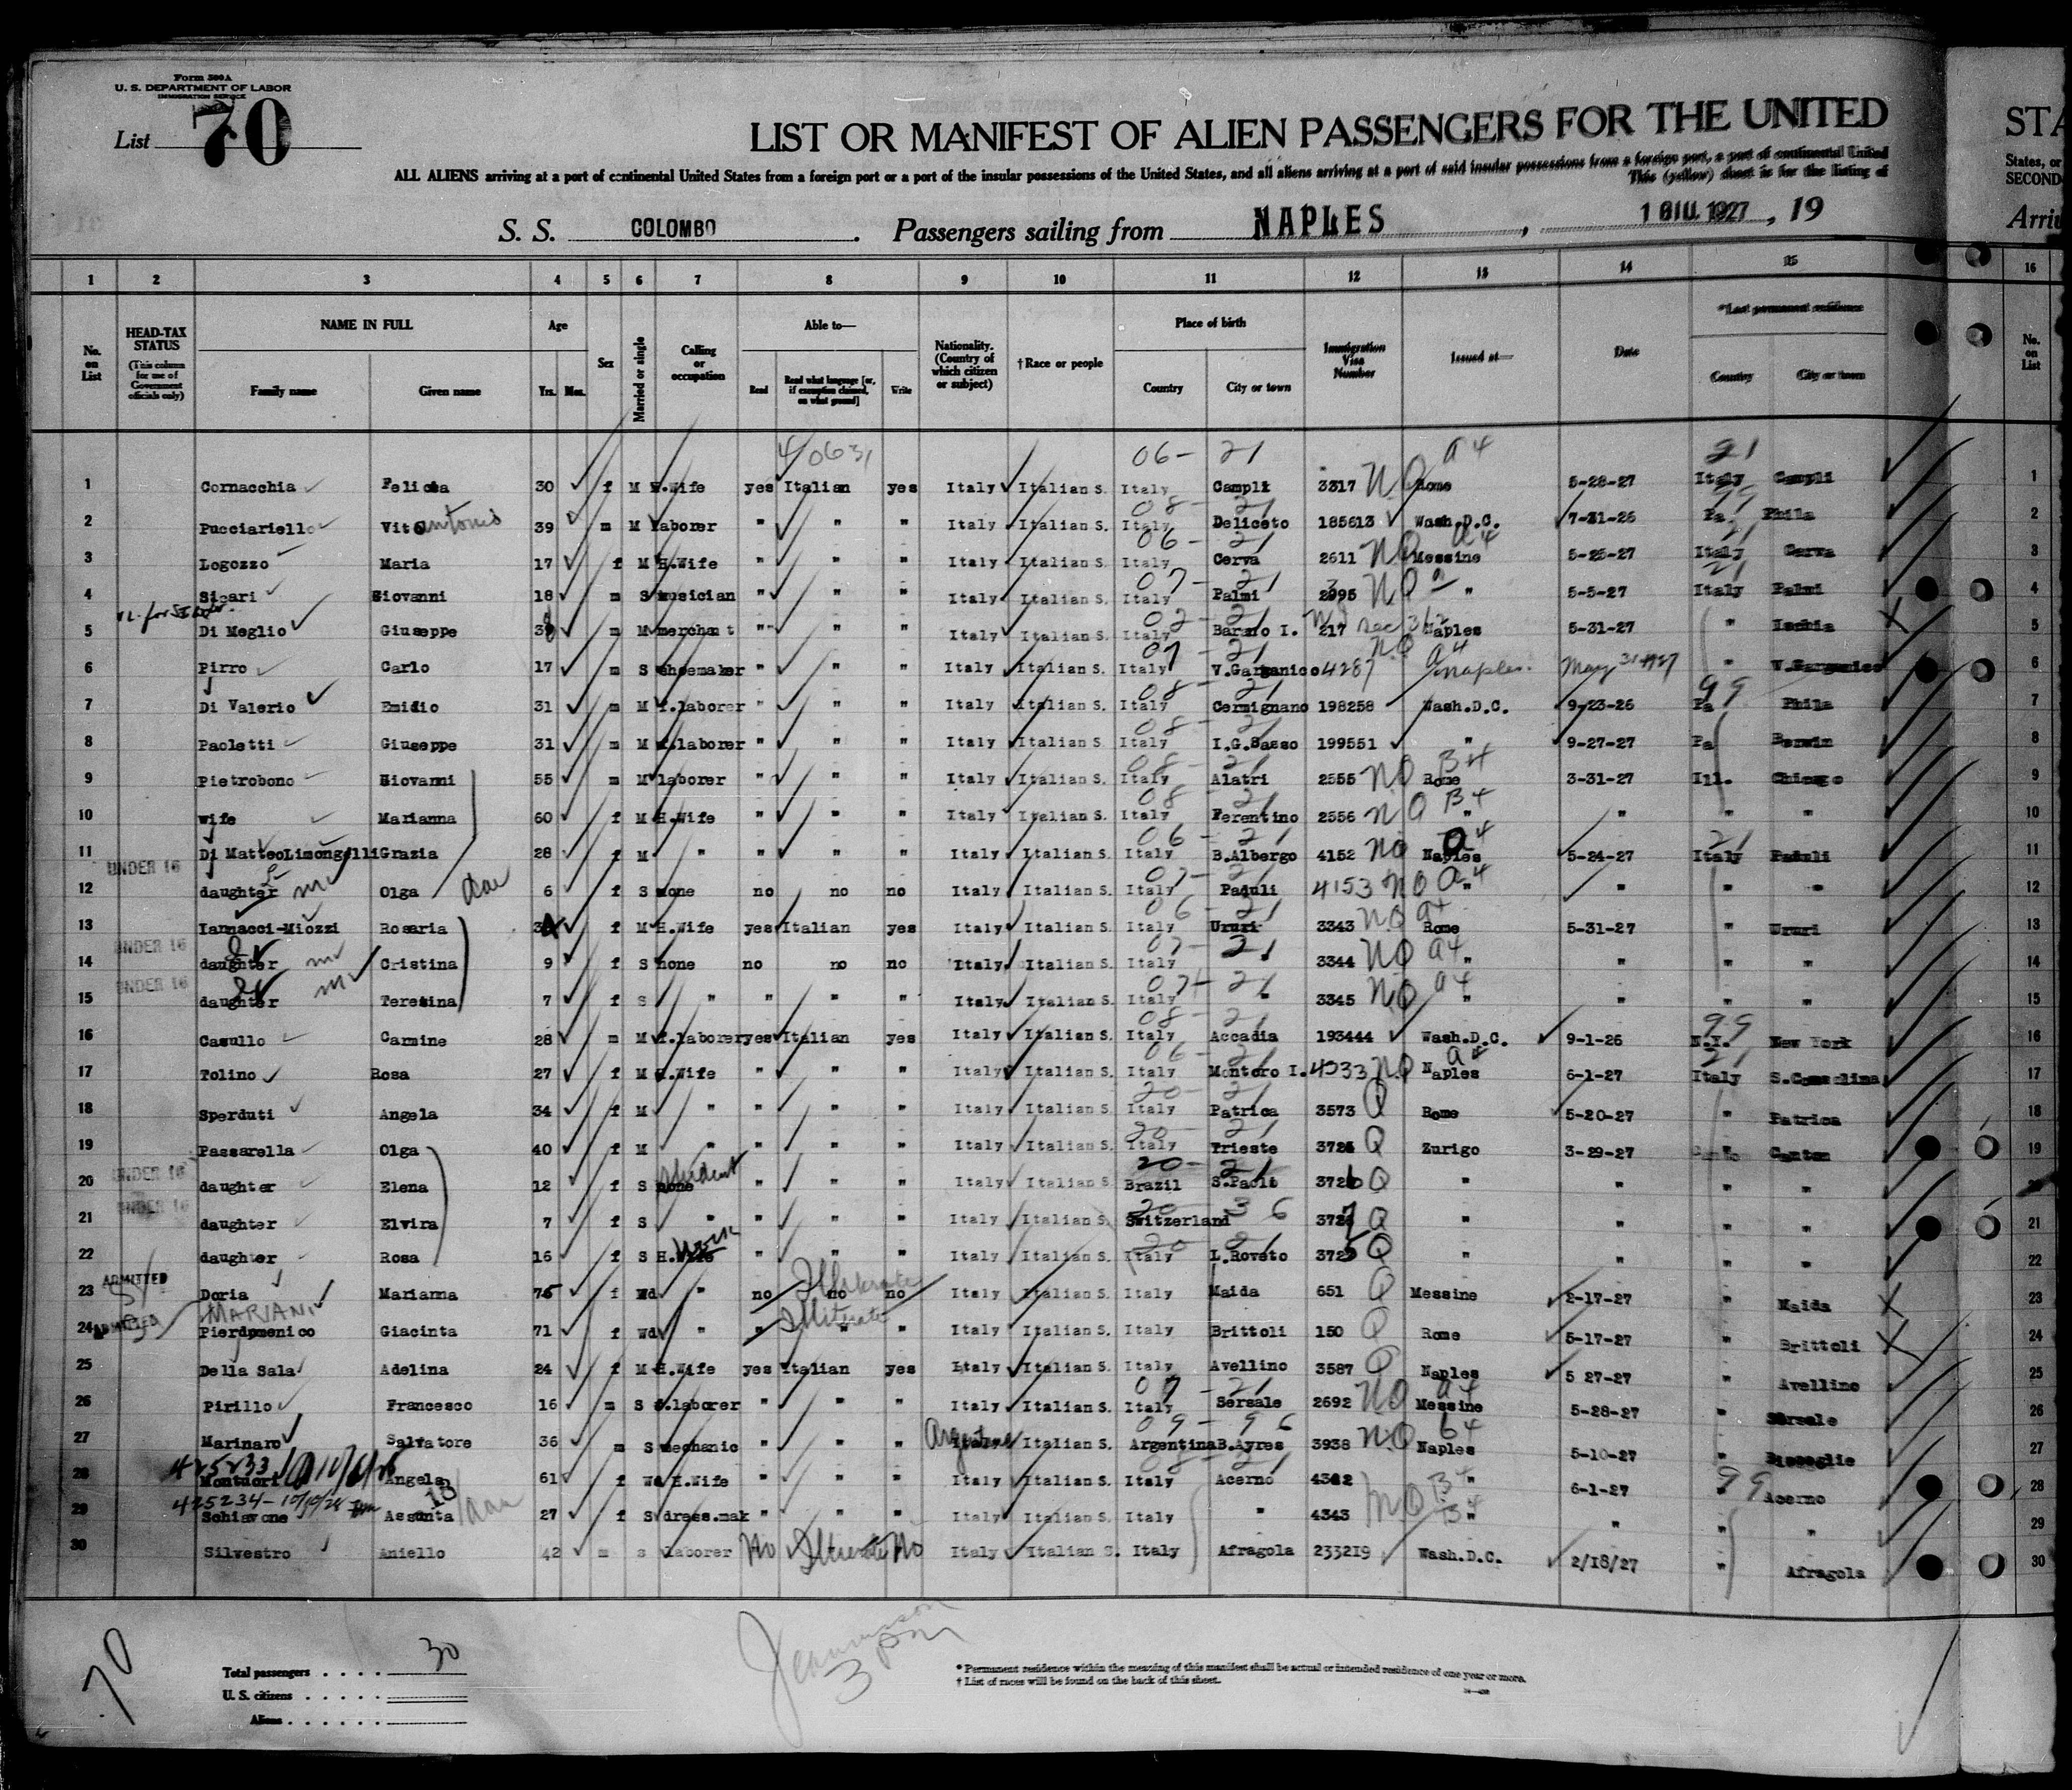 Form 500A
U. S. DEPARTMENT OF LABOR
IMMIGRATION SERVICE
List 70
LIST OR MANIFEST OF ALIEN PASSENGERS FOR THE UNITED
STA
ALL ALIENS arriving at a port of continental United States from a foreign port or a port of the insular possessions of the United States, and all aliens arriving at a port of said insular possessions from a foreign port, a port of continental United
States, or
This (yellow) sheet is for the listing of
SECOND
S. S. COLOMBO. Passengers sailing from NAPLES, 1 GIU. 1927, 19
Arri
1 2 3 4 5 6 7 8 9 10 11 12 13 14 15 16
No. on List
HEAD-TAX STATUS (This column for use of Government officials only)
NAME IN FULL
Family name Given name
Age
Yrs. Mos.
Sex
Married or single
Calling or occupation
Able to—
Read Read what language [or, if exemption claimed, on what ground] Write
Nationality. (Country of which citizen or subject)
†Race or people
Place of birth
Country City or town
Immigration Visa Number
Issued at—
Date
*Last permanent residence
Country City or town
No. on List
4/0631 06- 21 a4 21
1 Cornacchia 30 f M H.Wife yes Italian yes Italy Italian S. Italy Campli 3317 NQ Rome 5-28-27 Italy Campli 1
08- 21
2 Pucciariello Vito antonio 39 m M laborer " " " Italy Italian S. Italy Deliceto 185613 Wash.D.C. 7-31-26 Pa. Phila 2
06- 21 a4
3 Logozzo Maria 17 f M H.Wife " " " Italy Italian S. Italy Cerva 2611 NQ Messine 5-25-27 Italy Cerva 3
07- 21
4 Sicari Giovanni 18 m S musician " " " Italy Italian S. Italy Palmi 2395 NQ " 5-5-27 Italy Palmi 4
02- 21
5 Di Meglio Giuseppe m M merchant " " " Italy Italian S. Italy Barano I. 217 Naples 5-31-27 " Ischia 5
07- 21 NQ a4
6 Pirro Carlo 17 m S shoemaker " " " Italy Italian S. Italy V.Garganico 4287 Naples May 31-1927 " V.Garganico 6
08- 21 99
7 Di Valerio Emidio 31 m M f.laborer " " " Italy Italian S. Italy Cermignano 198258 Wash.D.C. 9-23-26 Pa Phila 7
08- 21
8 Paoletti Giuseppe 31 m M f.laborer " " " Italy Italian S. Italy I.G.Sasso 199551 " 9-27-27 Pa 8
08- 21 B4
9 Pietrobono Giovanni 55 m M laborer " " " Italy Italian S. Italy Alatri 2555 NQ Rome 3-31-27 Ill. Chicago 9
08- 21 B4
10 wife Marianna 60 f M H.Wife " " " Italy Italian S. Italy Ferentino 2556 NQ " " " " 10
06- 21 a4 21
11 Di Matteo Limongelli Grazia 28 f M " " " " Italy Italian S. Italy B.Albergo 4152 NQ Naples 5-24-27 Italy Paduli 11
UNDER 16
07- 21
12 daughter Olga 6 f S none no no no Italy Italian S. Italy Paduli 4153 NQ a4 " " " " 12
06- 21 a4
13 Iannacci-Miozzi Rosaria f M H.Wife yes Italian yes Italy Italian S. Italy Ururi 3343 NQ Rome 5-31-27 " Ururi 13
UNDER 16
07- 21
14 daughter Cristina 9 f S none no no no Italy Italian S. Italy " 3344 NQ a4 " " " " 14
UNDER 16
07- 21
15 daughter Teresina 7 f S " " " " Italy Italian S. Italy " 3345 NQ a4 " " " " 15
08- 21 99
16 Casullo Carmine 28 m M f.laborer yes Italian yes Italy Italian S. Italy Accadia 193444 Wash.D.C. 9-1-26 N.Y. New York 16
06- 21 a4 21
17 Tolino Rosa 27 f M H.Wife " " " Italy Italian S. Italy Montoro I. 4333 NQ Naples 6-1-27 Italy 17
20- 21
18 Sperduti Angela 34 f M " " " " Italy Italian S. Italy Patrica 3573 Q Rome 5-20-27 " Patrica 18
20- 21
19 Passarella Olga 40 f M " " " " Italy Italian S. Italy Trieste Q Zurigo 3-29-27 Canton 19
UNDER 16
student 20- 21
20 daughter Elena 12 f S none " " " Italy Italian S. Brazil S.Paolo 3726 Q " " " "
UNDER 16
20 36
21 daughter Elvira 7 f S " " " " Italy Italian S. Switzerland 3727 Q " " " " 21
work 20 21
22 daughter Rosa 16 f S H.Wife " " " Italy Italian S. Italy L.Roveto 3725 Q " " " " 22
ADMITTED
Illiterate
23 Doria Marianna 75 f Wd " no no no Italy Italian S. Italy Maida 651 Q Messine 2-17-27 " Maida 23
ADMITTED MARIANI Illiterate
24 Pierdomenico Giacinta 71 f Wd " " " " Italy Italian S. Italy Brittoli 150 Q Rome 5-17-27 " Brittoli 24
25 Della Sala Adelina 24 f M H.Wife yes Italian yes Italy Italian S. Italy Avellino 3587 Q Naples 5 27-27 " Avellino 25
07 - 21 a4
26 Pirillo Francesco 16 m S f.laborer " " " Italy Italian S. Italy Sersale 2692 NQ Messine 5-28-27 " Sersale 26
09- 96 b4
27 Marinaro Salvatore 36 m S mechanic " " " Argentine Italy Italian S. Argentina B.Ayres 3938 NQ Naples 5-10-27 " Bisceglie 27
425233 08- 21 99
28 Montuori Angela 61 f Wd H.Wife " " " Italy Italian S. Italy Acerno 4342 B4 " 6-1-27 " Acerno 28
425234-10/10/28
29 Schiavone Assunta 27 f S dress.mak " " " Italy Italian S. Italy " 4343 NQ B4 " " " " 29
30 Silvestro Aniello 42 m s laborer No Illiterate No Italy Italian S. Italy Afragola 233219 Wash.D.C. 2/18/27 " Afragola 30
70
Total passengers . . . . 30
U. S. citizens . . . . .
Aliens . . . . . .
3 PM
* Permanent residence within the meaning of this manifest shall be actual or intended residence of one year or more.
† List of races will be found on the back of this sheet.